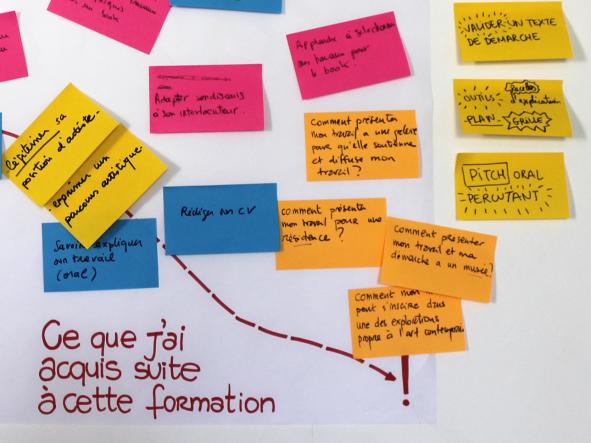 VALIDER UN TEXTE
DE DÉMARCHE
Apprendre à sélectionner
le book.
Adapter son discours
à son interlocuteur.
OUTILS
facettes
d'explication
PLAIN
GRILLE
Légitimer sa
position d'artiste.
exprimer un
parcours artistique.
Comment présenter
mon travail a une galerie
pour qu'elle soutienne
et diffuse mon
travail?
PITCH ORAL
PERCUTANT
Rédiger un CV
Comment présenter
mon travail pour une
résidence?
Savoir expliquer
son travail
(oral)
Comment presenter
mon travail et ma
démarche a un musée?
Comment mon
peut s'inscrire dans
une des explorations
propre à l'art contemporain
Ce que j'ai
acquis suite
à cette formation
!